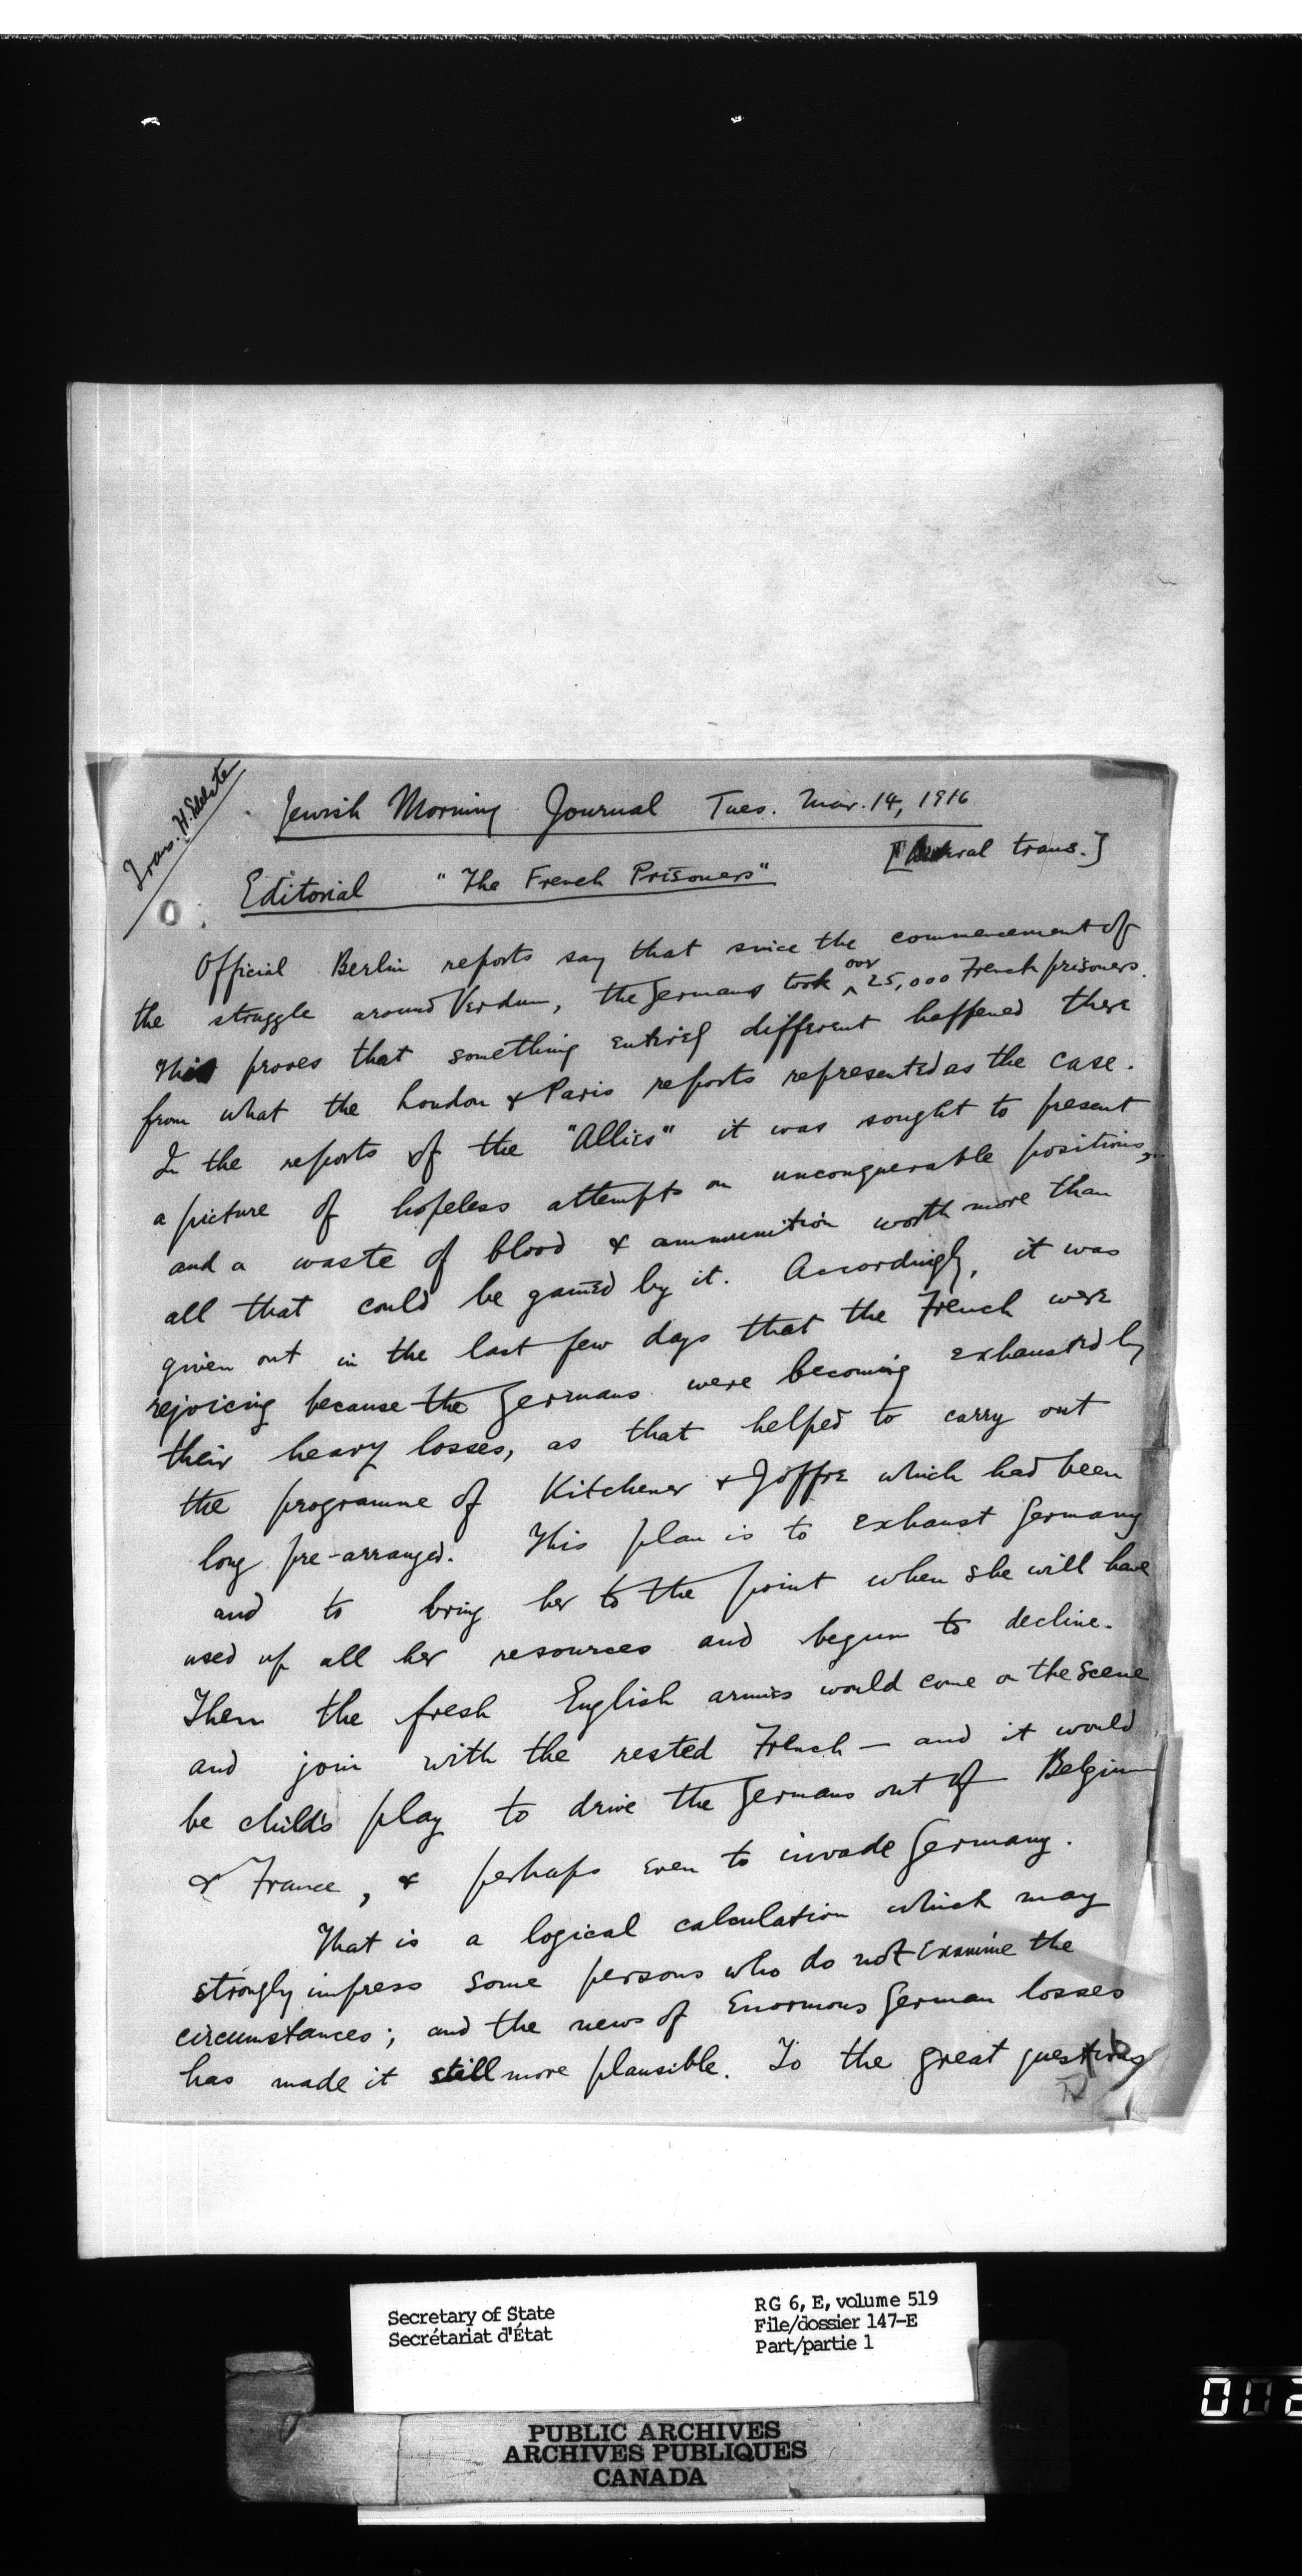 Trans. H.
Jewish Morning Journal Tues. Mar. 14, 1916
[Literal trans.]
Editorial "The French Prisoners"
Official Berlin reports say that since the commencement of
the struggle around Verdun, the Germans took over 25,000 French prisoners.
This proves that something entirely different happened there
from what the London & Paris reports represented as the case.
In the reports of the "Allies" it was sought to present
a picture of hopeless attempts on unconquerable positions,
and a waste of blood & ammunition worth more than
all that could be gained by it. Accordingly, it was
given out in the last few days that the French were
rejoicing because the Germans were becoming exhausted by
their heavy losses, as that helped to carry out
the programme of Kitchener & Joffre which had been
long pre-arranged. This plan is to exhaust Germany
and to bring her to the point when she will have
used up all her resources and begun to decline.
Then the fresh English armies would come on the scene
and join with the rested French — and it would
be child's play to drive the Germans out of Belgium
& France, & perhaps even to invade Germany.
That is a logical calculation which may
strongly impress some persons who do not examine the
circumstances; and the news of enormous German losses
has made it still more plausible. To the great
Secretary of State
Secrétariat d'État
RG 6, E, volume 519
File/dossier 147-E
Part/partie 1
PUBLIC ARCHIVES
ARCHIVES PUBLIQUES
CANADA